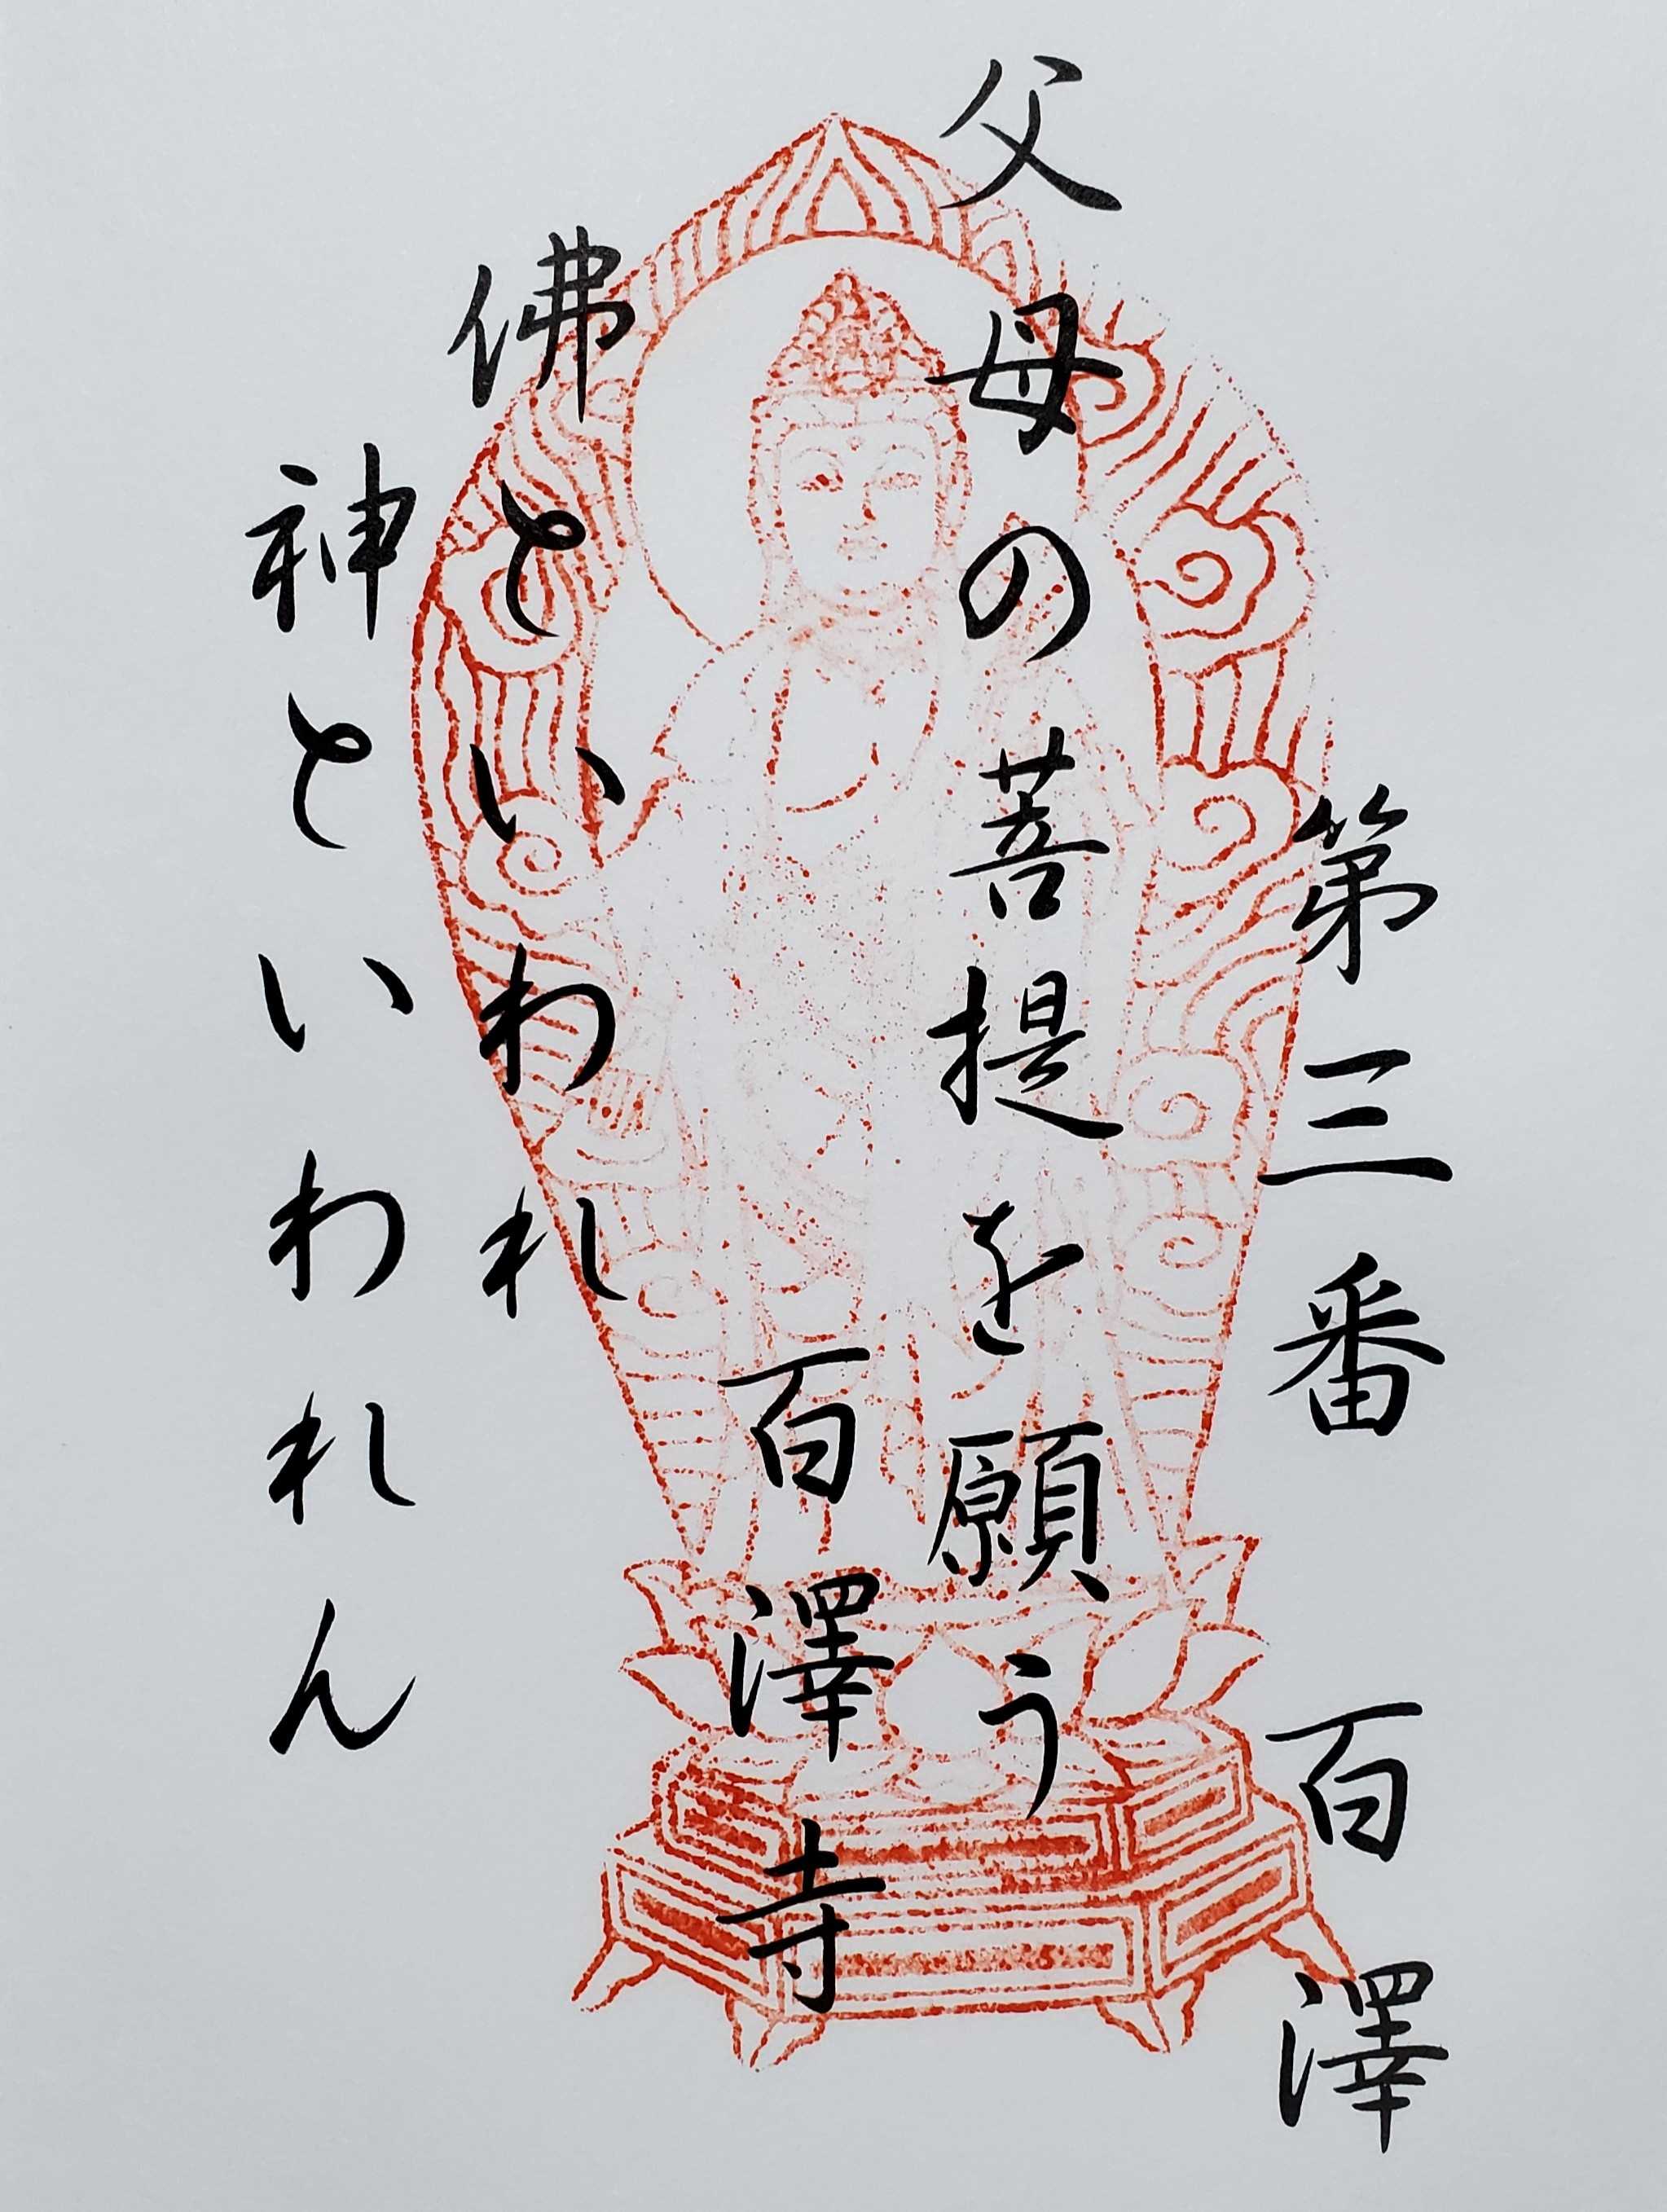 第三番 百澤
父母の菩提を願う
百澤寺
佛といわれ
神といわれん